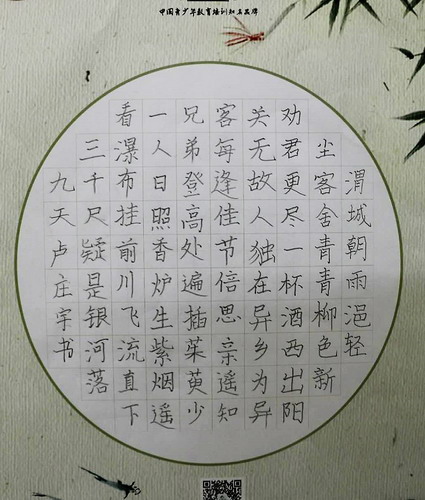 中国青少年教育培训知名品牌
渭城朝雨浥轻
尘客舍青青柳色新
劝君更尽一杯酒西出阳
关无故人独在异乡为异
客每逢佳节倍思亲遥知
兄弟登高处遍插茱萸少
一人日照香炉生紫烟遥
看瀑布挂前川飞流直下
三千尺疑是银河落
九天卢庄宇书